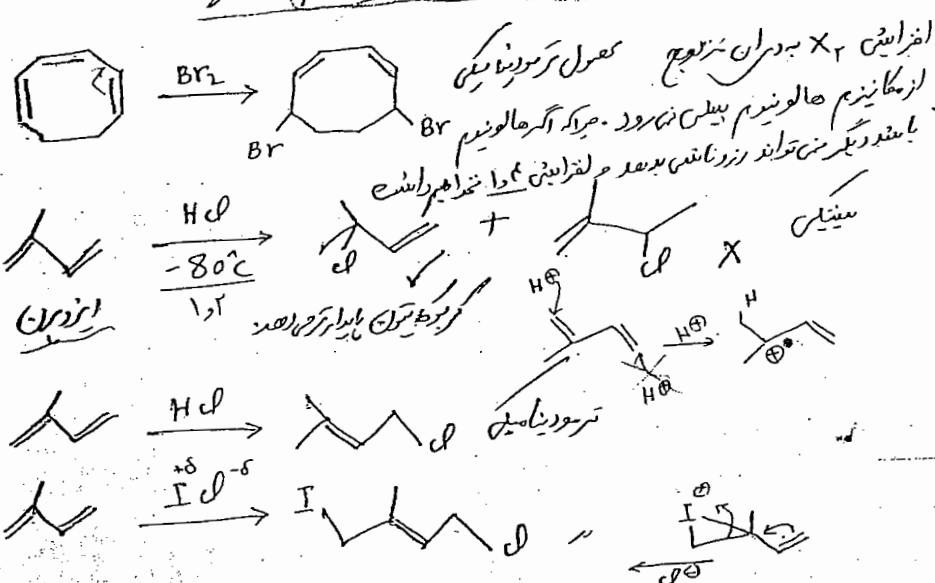 Br₂
Br
Br
افزایش X₂ به دی‌ان مزدوج محصول ترمودینامیکی
از مکانیزم هالونیوم پیش نمی‌رود. چرا که اگر هالونیوم
باشد دیگر نمی‌تواند رزونانس بدهد و افزایش ۱و۴ نخواهیم داشت
HCl
-80°C
۱و۲
Cl
+
Cl
X
سینتیکی
ایزوپرن
کربوکاتیون پایدارتر می‌دهد
H⊕
H⊕
H⊕
H
⊕
HCl
Cl
ترمودینامیکی
+δ -δ
I Cl
I
Cl
I⊕
Cl⊖